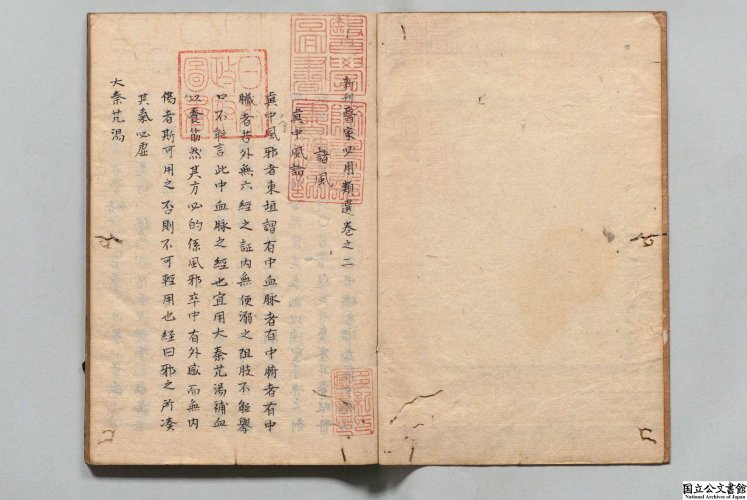 新刊醫家必用類選卷之二
諸風
真中風論
真中風邪者東垣謂有中血脉者有中腑者有中
臓者若外無六經之証内無便溺之阻肢不能舉
口不能言此中血脉之經也宜用大秦艽湯補血
以養筋然其方必的係風邪卒中有外感而無内
傷者斯可用之否則不可輕用也經曰邪之所凑
其氣必虛
大秦艽湯
日本
政府
圖書
国立公文書館
National Archives of Japan